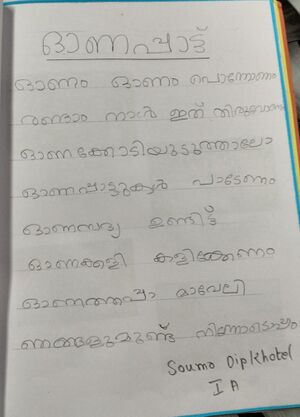 ഓണപ്പാട്ട്
ഓണം ഓണം പൊന്നോണം
രണ്ടാം നാൾ ഇത് തിരുവോണം
ഓണക്കോടിയുടുത്താലോ
ഓണപ്പാട്ടുകൾ പാടേണം
ഓണസദ്യ ഉണ്ടിട്ട്
ഓണക്കളി കളിക്കേണം
ഓണത്തപ്പാ മാവേലി
ഞങ്ങളുമുണ്ട് നിന്നോടൊപ്പം
Soumo Dipkhotel
I A